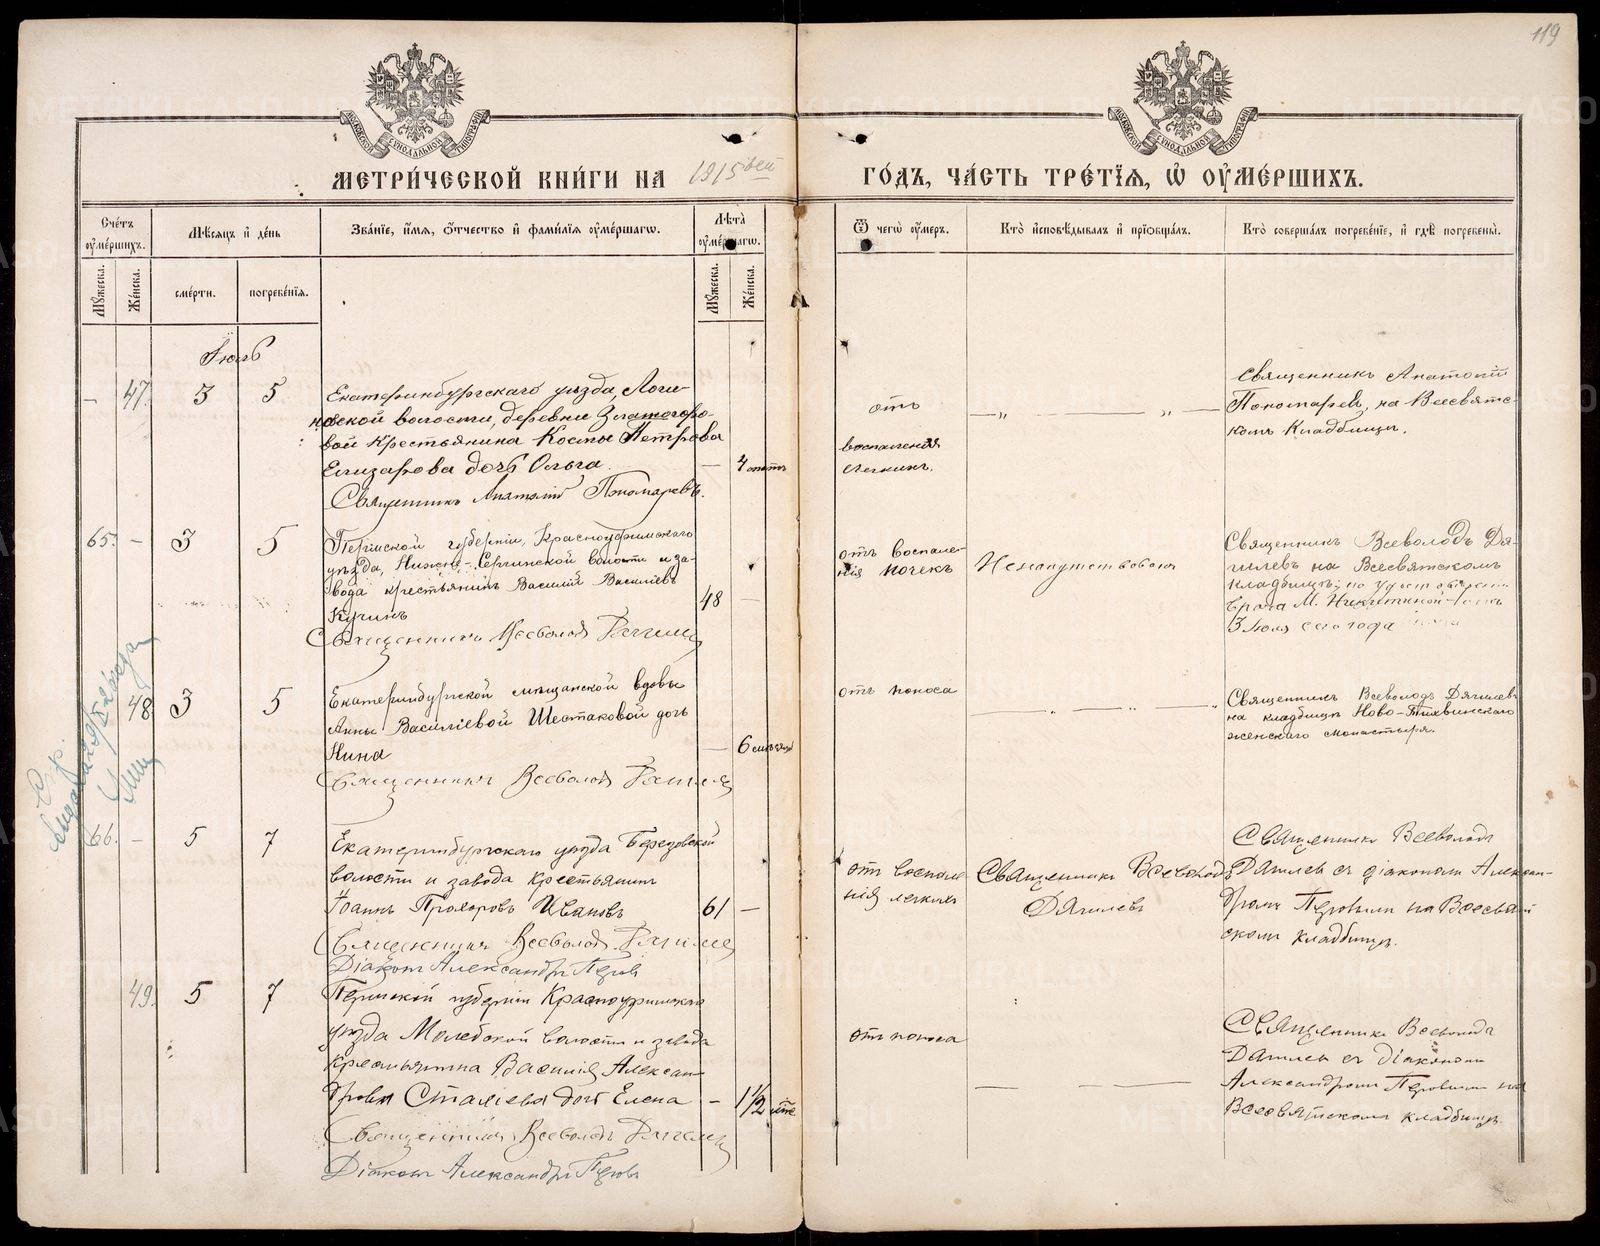 119
МЕТРИ́ЧЕСКОЙ КНИ́ГИ НА 1915 ый ГО́ДЪ, ЧА́СТЬ ТРЕ́ТЇѦ, Ѡ҆ ОУ҆МЕ́РШИХЪ.
Сче́тъ оу҆ме́ршихъ.
Мѣсѧцъ и҆ де́нь
Зва́нїе, и҆́мѧ, ѻ҆́тчество и҆ фами́лїѧ оу҆ме́ршагѡ.
Лѣта̀ оу҆ме́ршагѡ.
Ѿ чегѡ̀ оу҆́меръ.
Кто̀ и҆сповѣ́дывалъ и҆ прїѡбща́лъ.
Кто̀ соверша́лъ погребе́нїе, и҆ гдѣ̀ погребены̀.
Мꙋ́жеска.
Же́нска.
сме́рти.
погребе́нїѧ.
Мꙋ́жеска.
Же́нска.
Іюль
— 47. 3 5
Екатеринбургскаго уѣзда, Логи-
новской волости, деревни Златогоро-
вой крестьянина Космы Петрова
Елизарова дочь Ольга.
— 4 лѣтъ
Священникъ Анатолій Пономаревъ.
отъ
воспаленія
легкихъ.
Священникъ Анатолій
Пономаревъ, на Всесвятс-
комъ Кладбищѣ.
65. — 3 5
Пермской губерніи, Красноуфимскаго
уѣзда, Нижне-Сергинской волости и за-
вода крестьянинъ Василій Василіевъ
Кучинъ
48 —
Священникъ Всеволодъ Дягилевъ
отъ воспале-
нія почекъ
Ненапутствованъ
Священникъ Всеволодъ Дя-
гилевъ на Всесвятскомъ
кладбищѣ; по удостовѣренію
врача М. Никитиной
3 Іюля сего года
48 3 5
Екатеринбургской мѣщанской вдовы
Анны Василіевой Шестаковой дочь
Нина
— 6 мѣсяц
Священникъ Всеволодъ Дягилевъ
отъ поноса
Священникъ Всеволодъ Дягилевъ
на кладбищѣ Ново-Тихвинскаго
женскаго монастыря.
66. — 5 7
Екатеринбургскаго уѣзда Березовской
волости и завода крестьянинъ
Іоаннъ Прохоровъ Ивановъ
61 —
Священникъ Всеволодъ Дягилевъ
Діаконъ Александръ Перовъ
отъ воспале-
нія легкихъ
Священникъ Всеволодъ
Дягилевъ
Священникъ Всеволодъ
Дягилевъ съ діакономъ Алексан-
дромъ Перовымъ на Всесвят-
скомъ кладбищѣ.
49. 5 7
Пермской губерніи Красноуфимскаго
уѣзда Молебской волости и завода
крестьянина Василія Алексан-
дрова Сталіева дочь Елена
— 1 1/2 лѣтъ
Священникъ Всеволодъ Дягилевъ
Діаконъ Александръ Перовъ
отъ поноса
Священникъ Всеволодъ
Дягилевъ съ діакономъ
Александромъ Перовымъ на
Всесвятскомъ кладбищѣ.